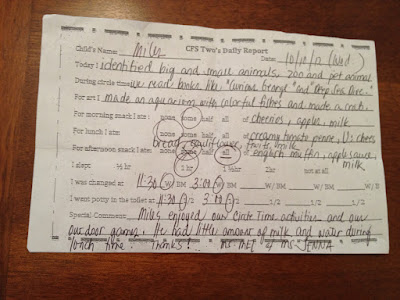 CFS Two's Daily Report
Child's Name: Miles Date: 10/10/12 (Wed)
Today I identified big and small animals, zoo and pet animal
During circle time we read books like "Curious George" and
For art I made an aquarium with colorful fishes and made a
For morning snack I ate: none some half all of cherries, apples, milk
For lunch I ate: none some half all of creamy tomato penne,
bread, cauliflower, fruits, milk
For afternoon snack I ate: none some half all of english muffin, applesauce
milk
I slept ½ hr 1 hr 1 ½hr 2hr not at all
I was changed at 11:30 W/ BM 3:00 W/ BM W/ BM W/ BM W/BM
I went potty in the toilet at 11:30 1/2 3:00 1/2 1/2 1/2 1/2
Special Comment: Miles enjoyed our Circle Time activities and our
outdoor games. He had little amount of milk and water during
lunch time. Thanks! Ms. & Ms. JENNA